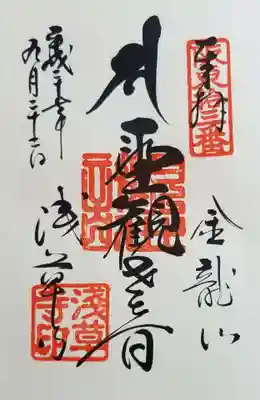 奉拝
坂東拾三番
金龍山
聖観世音
浅草寺
平成二十七年
九月二十二日
淺草寺印